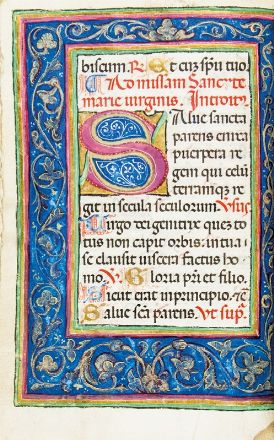 biscum. R. Et cuz spu tuo
Ad missam Sancte
marie virginis. Introit9.
Salue sancta
parens enixa
puerpera re
gem qui celu
terramqz re
git in secula seculorum. Vsus
Uirgo dei genitrix quez to
tus non capit orbis: in tua
se clausit uiscera factus ho
mo. V. Gloria pri et filio.
Sicut erat in principio. ec
Salue scta parens. Vt sup.